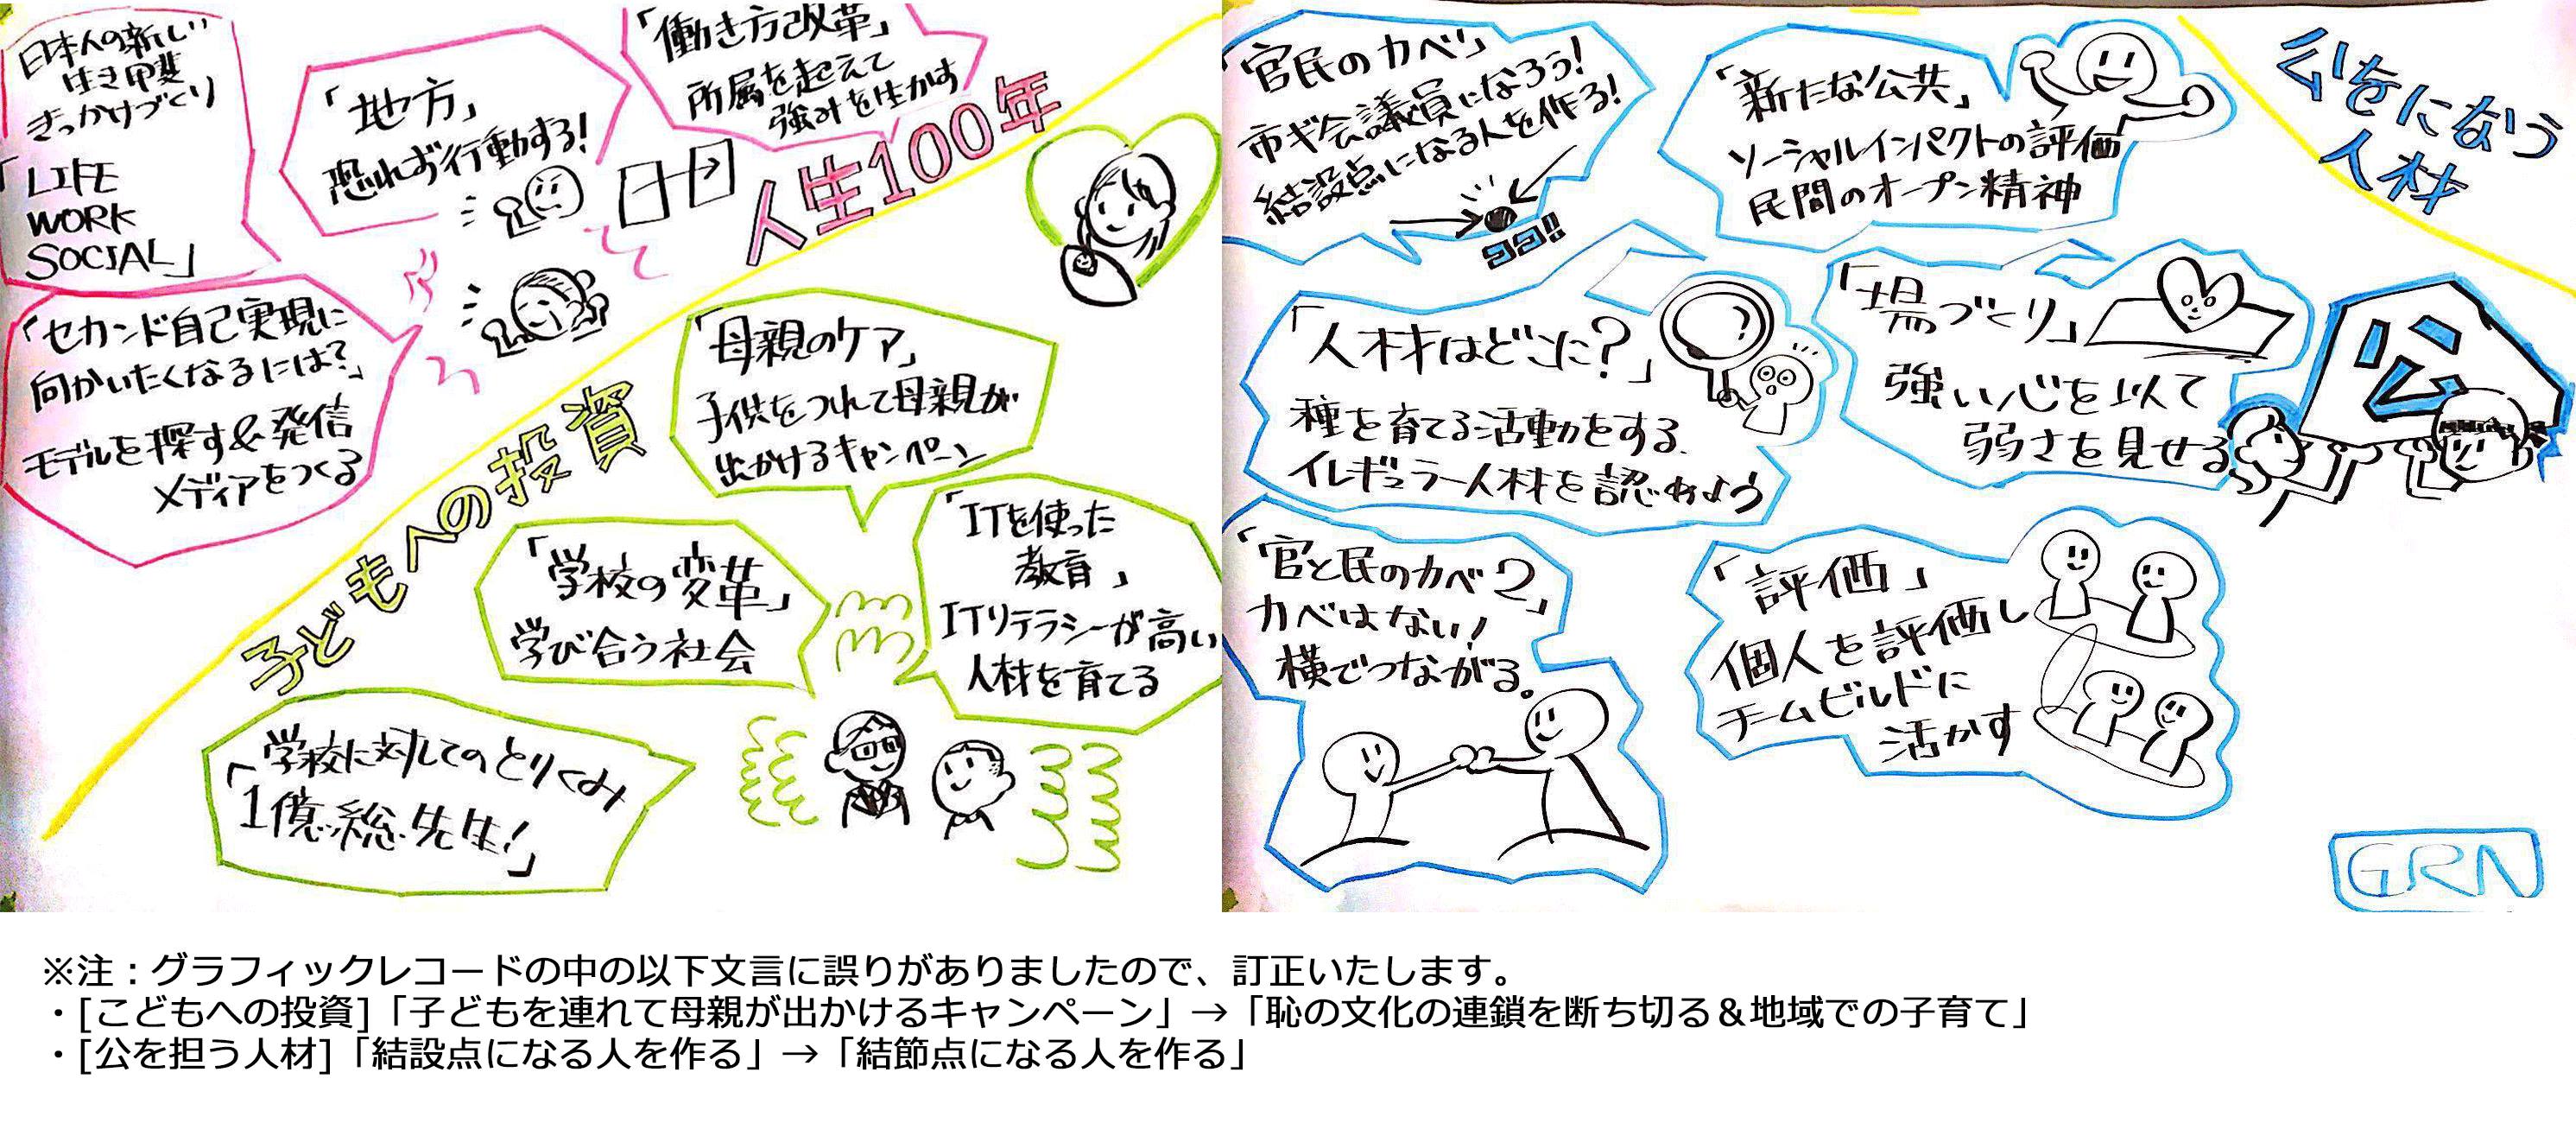 日本人の新しい
生き甲斐
きっかけづくり
「LIFE
WORK
SOCIAL」
「地方」
恐れず行動する!
「働き方改革」
所属を起えて
強みを生かす
人生100年
「セカンド自己実現に
向かいたくなるには?」
モデルを探す&発信
メディアをつくる
子どもへの投資
「母親のケア」
子供をつれて母親が
出かけるキャンペーン
「学校の変革」
学び合う社会
「ITを使った
教育」
ITリテラシーが高い
人材を育てる
学校に対してのとりくみ
「1億総先生!」
「官民のカベ」
市ギ会議員になろう!
結設点になる人を作る!
ココ!!
「新たな公共」
ソーシャルインパクトの評価
民間のオープン精神
公をになう
人材
「人材はどこに?」
種を育てる活動をする.
イレギュラー人材を認めよう
「場づくり」
強い心を以て
弱さを見せる
公
「官と民のカベ2」
カベはない!
横でつながる。
「評価」
個人を評価し
チームビルドに
活かす
GRN
※注：グラフィックレコードの中の以下文言に誤りがありましたので、訂正いたします。
・[こどもへの投資]「子どもを連れて母親が出かけるキャンペーン」→「恥の文化の連鎖を断ち切る＆地域での子育て」
・[公を担う人材]「結設点になる人を作る」→「結節点になる人を作る」